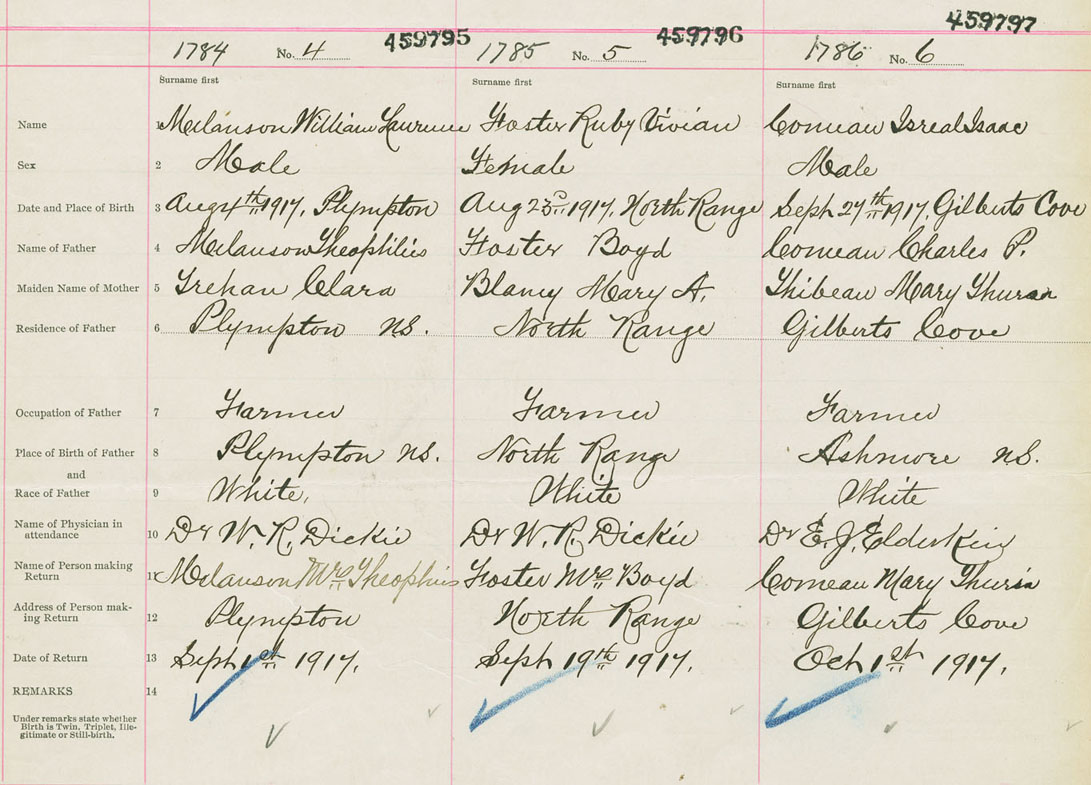 459795 459796 459797
1784 No. 4 1785 No. 5 1786 No. 6
Surname first Surname first Surname first
Name 1 Melanson William Laurence Foster Ruby Vivian Comeau Isreal Isaac
Sex 2 Male Female Male
Date and Place of Birth 3 Aug 4th 1917, Plympton Aug 23rd 1917, North Range Sept 27th 1917, Gilberts Cove
Name of Father 4 Melanson Theophilies Foster Boyd Comeau Charles P.
Maiden Name of Mother 5 Trehan Clara Blaney Mary A. Thibeau Mary Thuran
Residence of Father 6 Plympton NS. North Range Gilberts Cove
Occupation of Father 7 Farmer Farmer Farmer
Place of Birth of Father 8 Plympton NS. North Range Ashmore NS.
and
Race of Father 9 White, White White
Name of Physician in
attendance 10 Dr W. R. Dickie Dr W. R. Dickie Dr E. J. Elderkin
Name of Person making
Return 11 Melanson Mrs Theophius Foster Mrs Boyd Comeau Mary Thurin
Address of Person mak-
ing Return 12 Plympton North Range Gilberts Cove
Date of Return 13 Sept 1st 1917. Sept 19th 1917. Oct 1st 1917.
REMARKS 14
Under remarks state whether
Birth is Twin, Triplet, Ille-
gitimate or Still-birth.